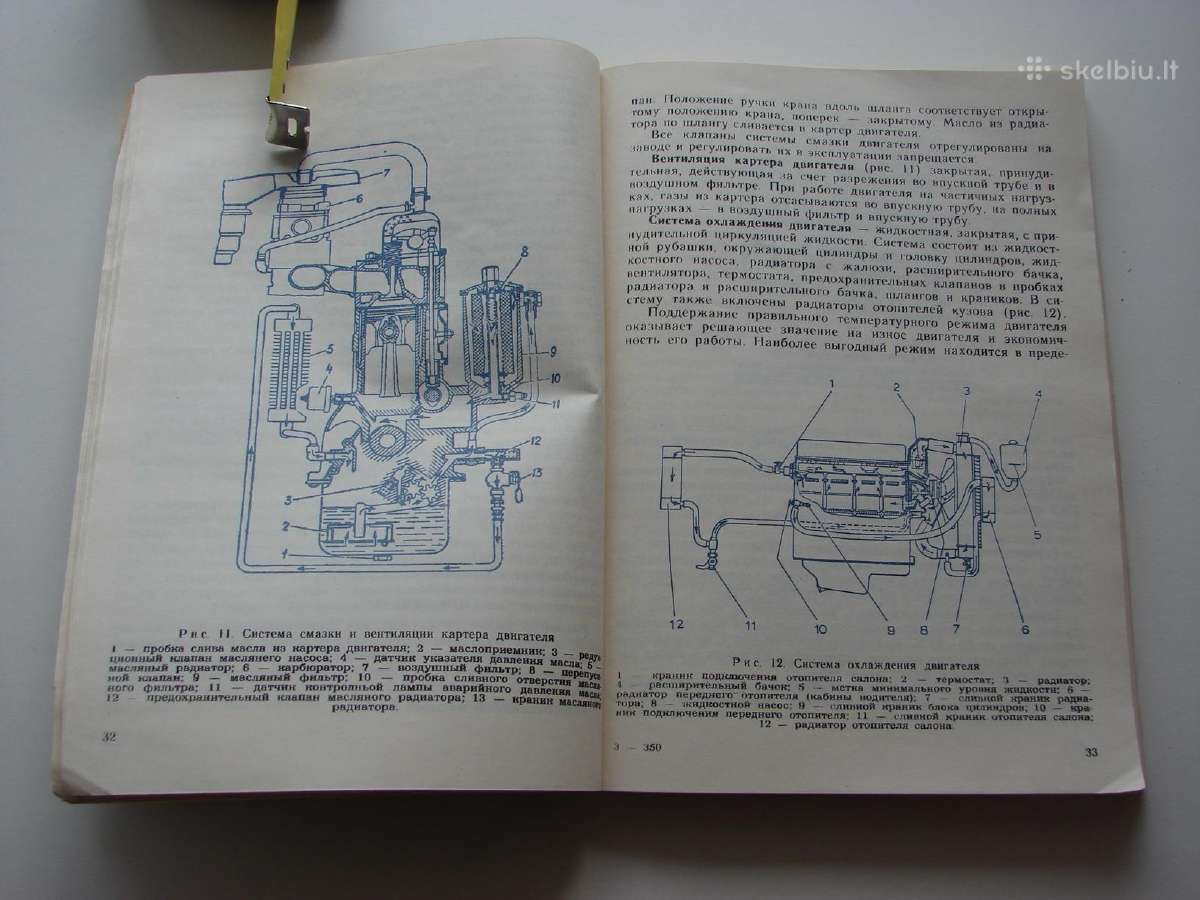 skelbiu.lt
7
6
8
5
4
9
10
11
12
13
3
2
1
Рис. 11. Система смазки и вентиляции картера двигателя
1 — пробка слива масла из картера двигателя; 2 — маслоприемник; 3 — редук-
ционный клапан масляного насоса; 4 — датчик указателя давления масла; 5 —
масляный радиатор; 6 — карбюратор; 7 — воздушный фильтр; 8 — перепуск
ной клапан; 9 — масляный фильтр; 10 — пробка сливного отверстия масля-
ного фильтра; 11 — датчик контрольной лампы аварийного давления масла;
12 — предохранительный клапан масляного радиатора; 13 — краник масляного
радиатора.
32
пан. Положение ручки крана вдоль шланга соответствует откры-
тому положению крана, поперек — закрытому. Масло из радиа-
тора по шлангу сливается в картер двигателя.
Все клапаны системы смазки двигателя отрегулированы на
заводе и регулировать их в эксплуатации запрещается.
Вентиляция картера двигателя (рис. 11) закрытая, принуди-
тельная, действующая за счет разрежения во впускной трубе и в
воздушном фильтре. При работе двигателя на частичных нагруз-
ках, газы из картера отсасываются во впускную трубу, на полных
нагрузках — в воздушный фильтр и впускную трубу.
Система охлаждения двигателя — жидкостная, закрытая, с при-
нудительной циркуляцией жидкости. Система состоит из жидкост-
ной рубашки, окружающей цилиндры и головку цилиндров, жид-
костного насоса, радиатора с жалюзи, расширительного бачка,
вентилятора, термостата, предохранительных клапанов в пробках
радиатора и расширительного бачка, шлангов и краников. В си-
стему также включены радиаторы отопителей кузова (рис. 12).
Поддержание правильного температурного режима двигателя
оказывает решающее значение на износ двигателя и экономич-
ность его работы. Наиболее выгодный режим находится в преде-
1 2 3 4
5
12 11 10 9 8 7 6
Рис. 12. Система охлаждения двигателя
1 — краник подключения отопителя салона; 2 — термостат; 3 — радиатор;
4 — расширительный бачок; 5 — метка минимального уровня жидкости; 6 —
радиатор переднего отопителя (кабины водителя); 7 — сливной краник радиа-
тора; 8 — жидкостной насос; 9 — сливной краник блока цилиндров; 10 — кра-
ник подключения переднего отопителя; 11 — сливной краник отопителя салона;
12 — радиатор отопителя салона.
3 — 350
33